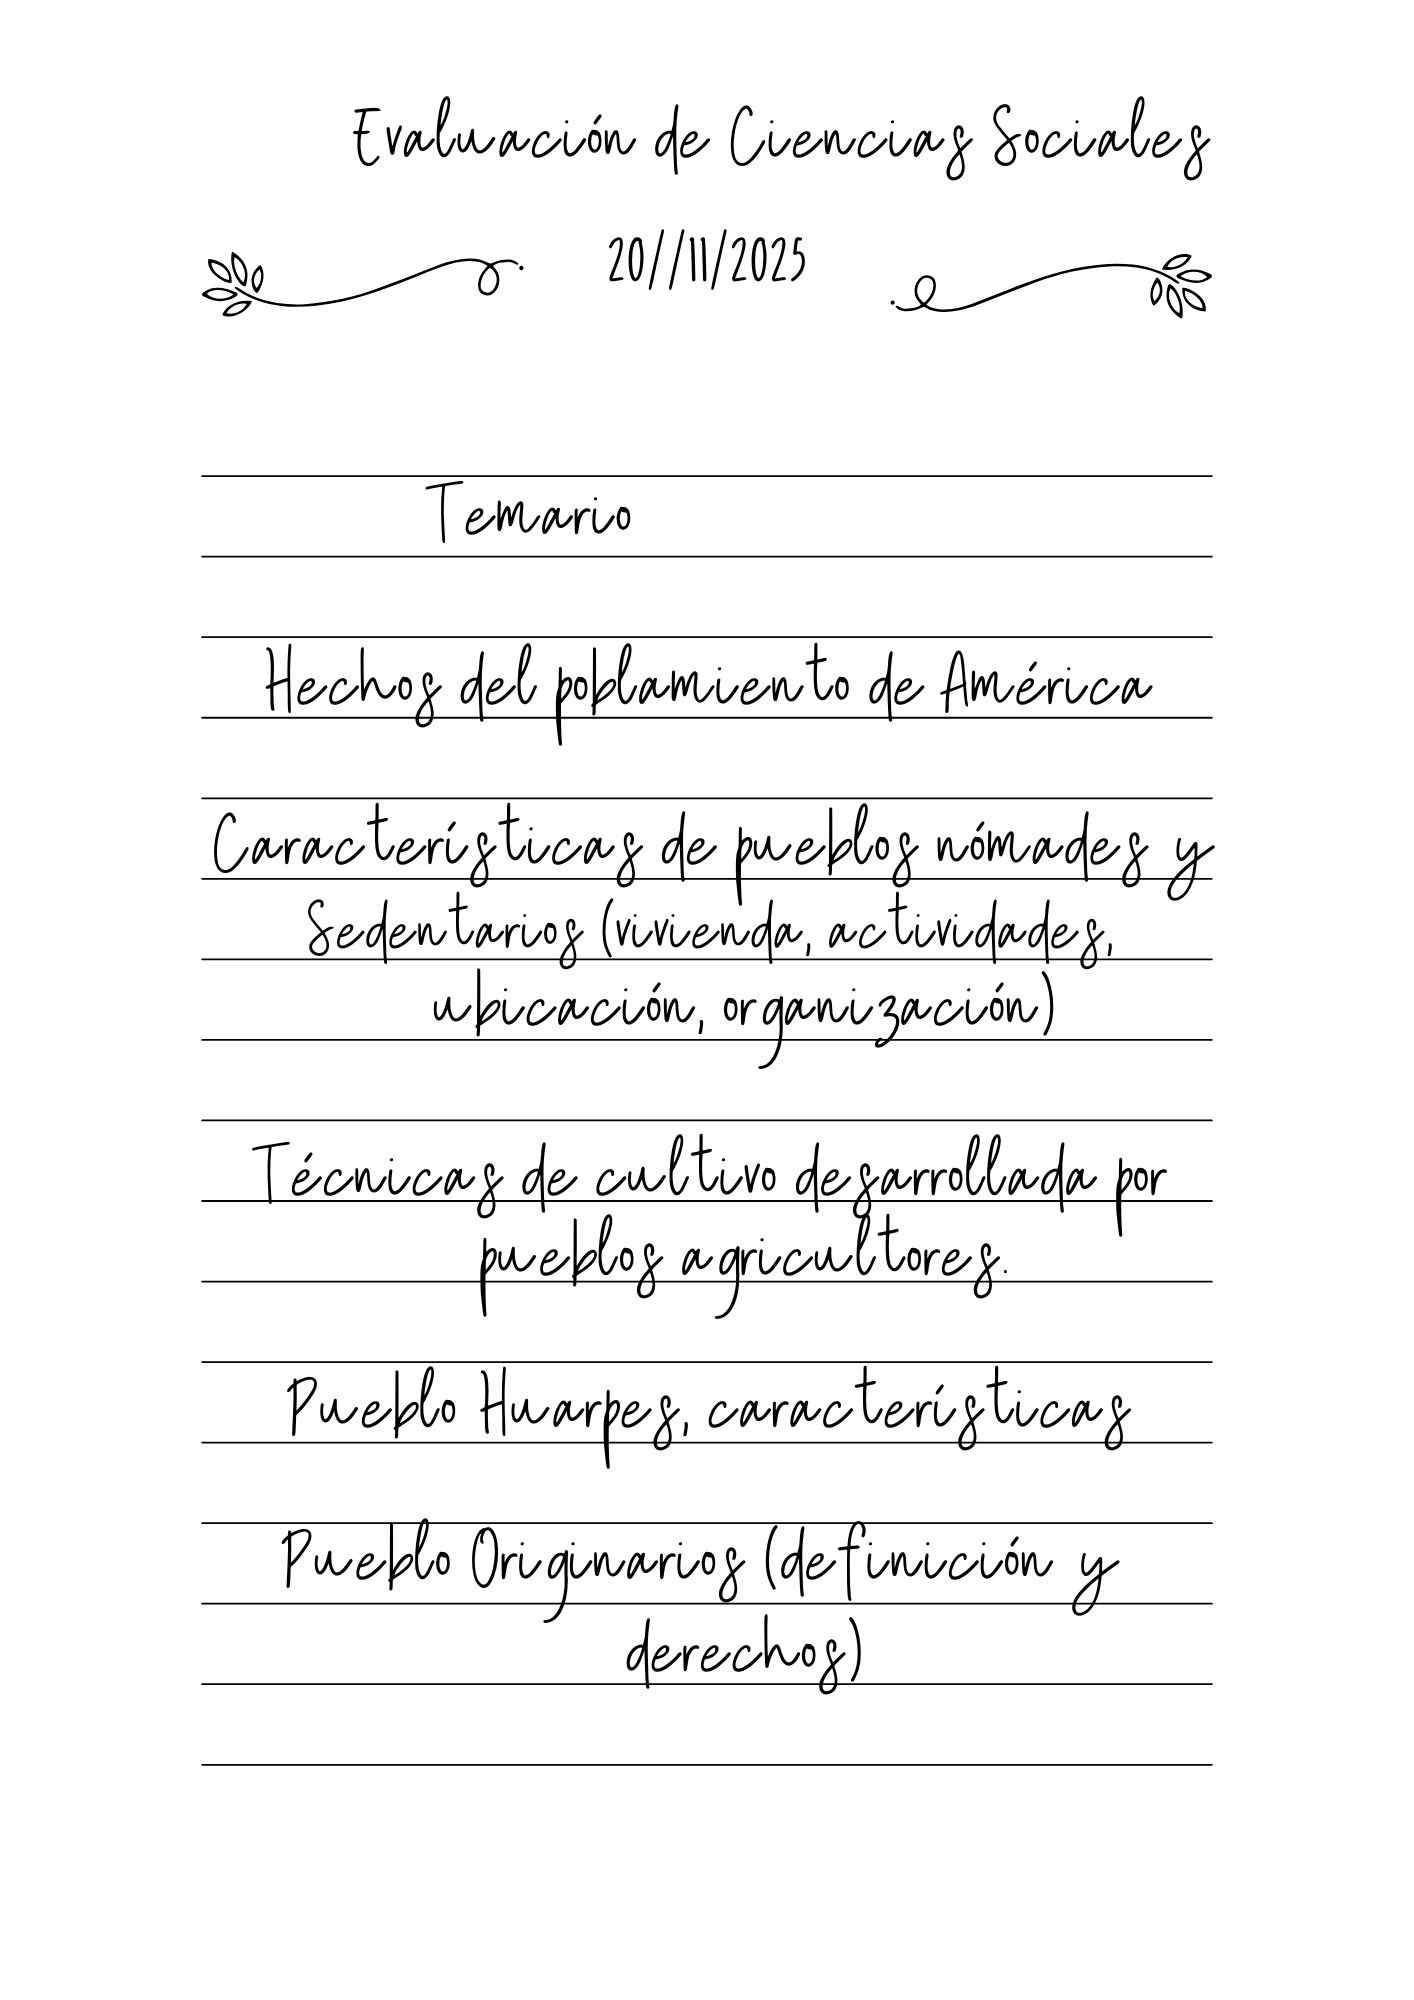 Evaluación de Ciencias Sociales
20//11/2025
Temario
Hechos del poblamiento de América
Características de pueblos nómades y
Sedentarios (vivienda, actividades,
ubicación, organización)
Técnicas de cultivo desarrollada por
pueblos agricultores.
Pueblo Huarpes, características
Pueblo Originarios (definición y
derechos)